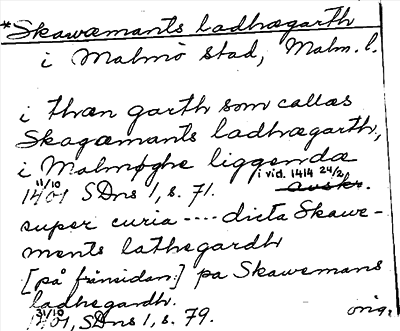 *Skawæmants ladhægarth
i Malmö stad, Malm. l.
i thæn garth som callæs
Skagæmants ladhægarth,
i Malmøghe liggendæ
11/10 1401 SDns 1, s. 71. i vid. 1414 24/2 avskr.
super curia ---- dicta Skawe-
ments lathegardh
[på frånsidan:] pa Skawemans
ladhegardh.
31/10 1401, SDns 1, s. 79. orig.